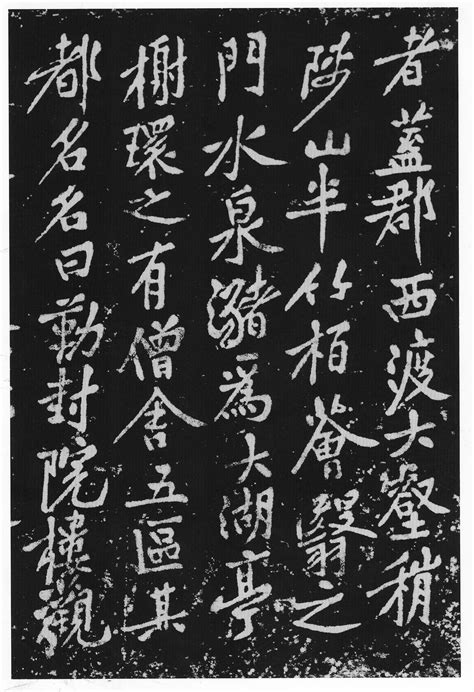 者蓋郡西渡大壑稍
陟山半竹栢薈翳之
門水泉瀦爲大湖亭
榭環之有僧舍五區其
都名名曰勤封院樓觀